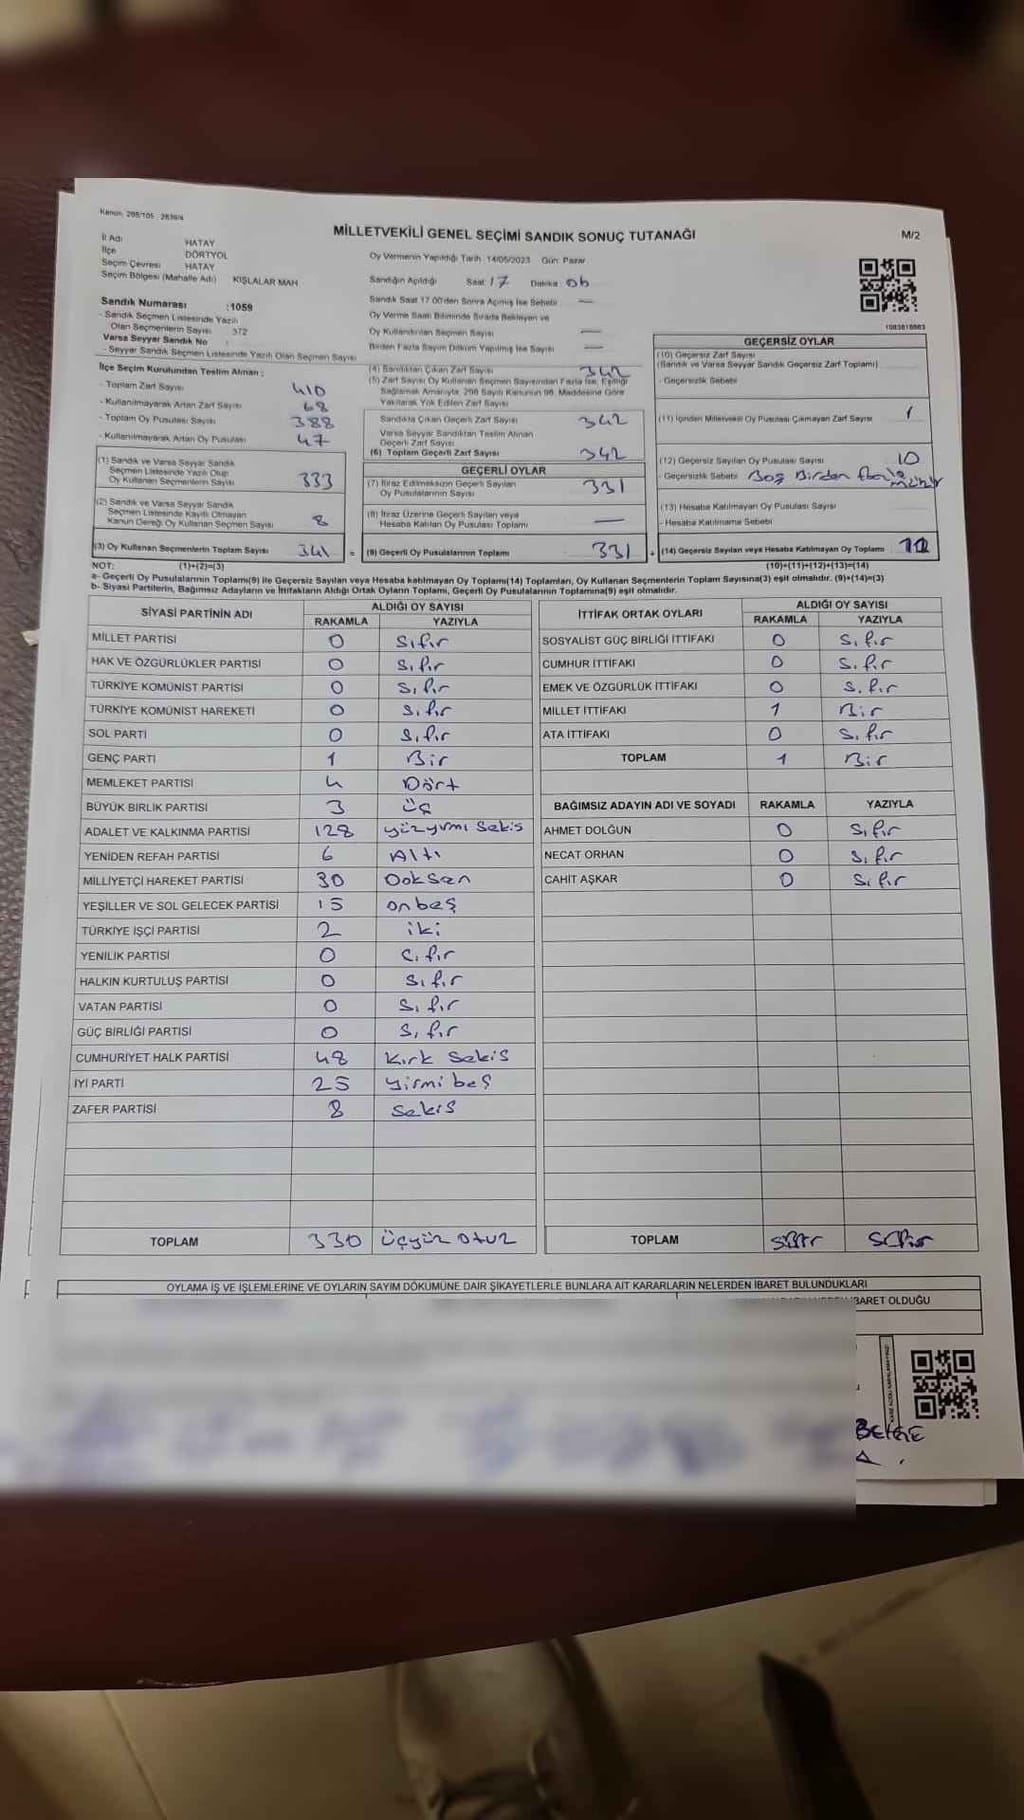 Kanun: 298/105 , 2839/4
MİLLETVEKİLİ GENEL SEÇİMİ SANDIK SONUÇ TUTANAĞI
M/2
İl Adı HATAY
İlçe DÖRTYOL
Seçim Çevresi HATAY
Seçim Bölgesi (Mahalle Adı) KIŞLALAR MAH
Oy Vermenin Yapıldığı Tarih 14/05/2023 Gün: Pazar
Sandığın Açıldığı Saat 17 Dakika 06
Sandık Saat 17.00'den Sonra Açılmış İse Sebebi —
Oy Verme Saati Bitiminde Sırada Bekleyen ve
Oy Kullandırılan Seçmen Sayısı —
Birden Fazla Sayım Döküm Yapılmış İse Sayısı —
Sandık Numarası :1059
- Sandık Seçmen Listesinde Yazılı
Olan Seçmenlerin Sayısı 372
Varsa Seyyar Sandık No :
- Seyyar Sandık Seçmen Listesinde Yazılı Olan Seçmen Sayısı
İlçe Seçim Kurulundan Teslim Alınan ;
- Toplam Zarf Sayısı 410
- Kullanılmayarak Artan Zarf Sayısı 68
- Toplam Oy Pusulası Sayısı 388
- Kullanılmayarak Artan Oy Pusulası 47
(1) Sandık ve Varsa Seyyar Sandık
Seçmen Listesinde Yazılı Olup
Oy Kullanan Seçmenlerin Sayısı 333
(2) Sandık ve Varsa Seyyar Sandık
Seçmen Listesinde Kayıtlı Olmayan
Kanun Gereği Oy Kullanan Seçmen Sayısı 8
(3) Oy Kullanan Seçmenlerin Toplam Sayısı 341 =
(4) Sandıktan Çıkan Zarf Sayısı 342
(5) Zarf Sayısı Oy Kullanan Seçmen Sayısından Fazla İse, Eşitliği
Sağlamak Amacıyla, 298 Sayılı Kanunun 98. Maddesine Göre
Yakılarak Yok Edilen Zarf Sayısı
Sandıkta Çıkan Geçerli Zarf Sayısı 342
Varsa Seyyar Sandıktan Teslim Alınan
Geçerli Zarf Sayısı
(6) Toplam Geçerli Zarf Sayısı 342
GEÇERLİ OYLAR
(7) İtiraz Edilmeksizin Geçerli Sayılan
Oy Pusulalarının Sayısı 331
(8) İtiraz Üzerine Geçerli Sayılan veya
Hesaba Katılan Oy Pusulası Toplamı —
(9) Geçerli Oy Pusulalarının Toplamı 331 +
GEÇERSİZ OYLAR
(10) Geçersiz Zarf Sayısı
(Sandık ve Varsa Seyyar Sandık Geçersiz Zarf Toplamı)
- Geçersizlik Sebebi
(11) İçinden Milletvekili Oy Pusulası Çıkmayan Zarf Sayısı 1
(12) Geçersiz Sayılan Oy Pusulası Sayısı 10
- Geçersizlik Sebebi Boş Birden Mühür
(13) Hesaba Katılmayan Oy Pusulası Sayısı
- Hesaba Katılmama Sebebi
(14) Geçersiz Sayılan veya Hesaba Katılmayan Oy Toplamı
NOT: (1)+(2)=(3) (10)+(11)+(12)+(13)=(14)
a- Geçerli Oy Pusulalarının Toplamı(9) ile Geçersiz Sayılan veya Hesaba katılmayan Oy Toplamı(14) Toplamları, Oy Kullanan Seçmenlerin Toplam Sayısına(3) eşit olmalıdır. (9)+(14)=(3)
b- Siyasi Partilerin, Bağımsız Adayların ve İttifakların Aldığı Ortak Oyların Toplamı, Geçerli Oy Pusulalarının Toplamına(9) eşit olmalıdır.
SİYASİ PARTİNİN ADI ALDIĞI OY SAYISI
RAKAMLA YAZIYLA
MİLLET PARTİSİ 0 Sıfır
HAK VE ÖZGÜRLÜKLER PARTİSİ 0 Sıfır
TÜRKİYE KOMÜNİST PARTİSİ 0 Sıfır
TÜRKİYE KOMÜNİST HAREKETİ 0 Sıfır
SOL PARTİ 0 Sıfır
GENÇ PARTİ 1 Bir
MEMLEKET PARTİSİ 4 Dört
BÜYÜK BİRLİK PARTİSİ 3 üç
ADALET VE KALKINMA PARTİSİ 128 yüzyirmi Sekis
YENİDEN REFAH PARTİSİ 6 Altı
MİLLİYETÇİ HAREKET PARTİSİ 90 Doksan
YEŞİLLER VE SOL GELECEK PARTİSİ 15 onbeş
TÜRKİYE İŞÇİ PARTİSİ 2 iki
YENİLİK PARTİSİ 0 Sıfır
HALKIN KURTULUŞ PARTİSİ 0 Sıfır
VATAN PARTİSİ 0 Sıfır
GÜÇ BİRLİĞİ PARTİSİ 0 Sıfır
CUMHURİYET HALK PARTİSİ 48 Kırk Sekis
İYİ PARTİ 25 yirmi beş
ZAFER PARTİSİ 8 Sekis
TOPLAM 330 üçyüz otuz
İTTİFAK ORTAK OYLARI ALDIĞI OY SAYISI
RAKAMLA YAZIYLA
SOSYALİST GÜÇ BİRLİĞİ İTTİFAKI 0 Sıfır
CUMHUR İTTİFAKI 0 Sıfır
EMEK VE ÖZGÜRLÜK İTTİFAKI 0 Sıfır
MİLLET İTTİFAKI 1 Bir
ATA İTTİFAKI 0 Sıfır
TOPLAM 1 Bir
BAĞIMSIZ ADAYIN ADI VE SOYADI RAKAMLA YAZIYLA
AHMET DOLĞUN 0 Sıfır
NECAT ORHAN 0 Sıfır
CAHİT AŞKAR 0 Sıfır
TOPLAM Sıfır Sıfır
OYLAMA İŞ VE İŞLEMLERİNE VE OYLARIN SAYIM DÖKÜMÜNE DAİR ŞİKAYETLERLE BUNLARA AİT KARARLARIN NELERDEN İBARET BULUNDUKLARI
İBARET OLDUĞU
BELGE